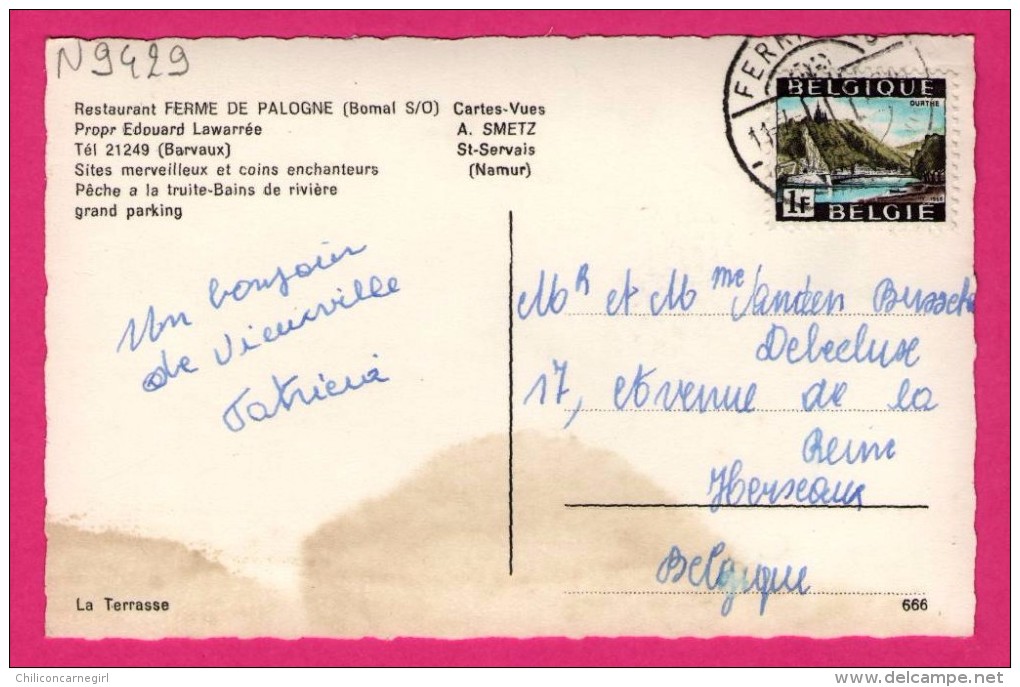 N9429
Restaurant FERME DE PALOGNE (Bomal S/O)
Propr Edouard Lawarrée
Tél 21249 (Barvaux)
Sites merveilleux et coins enchanteurs
Pêche a la truite-Bains de rivière
grand parking
Cartes-Vues
A. SMETZ
St-Servais
(Namur)
BELGIQUE
OURTHE
1F
BELGIË
Un bonjour
de Vieuxville
Patricia
Mr et Mme Vanden
Delecluse
17, Avenue de la
Reine
Herseaux
Belgique
La Terrasse
666
Chiliconcarnegirl
www.delcampe.net